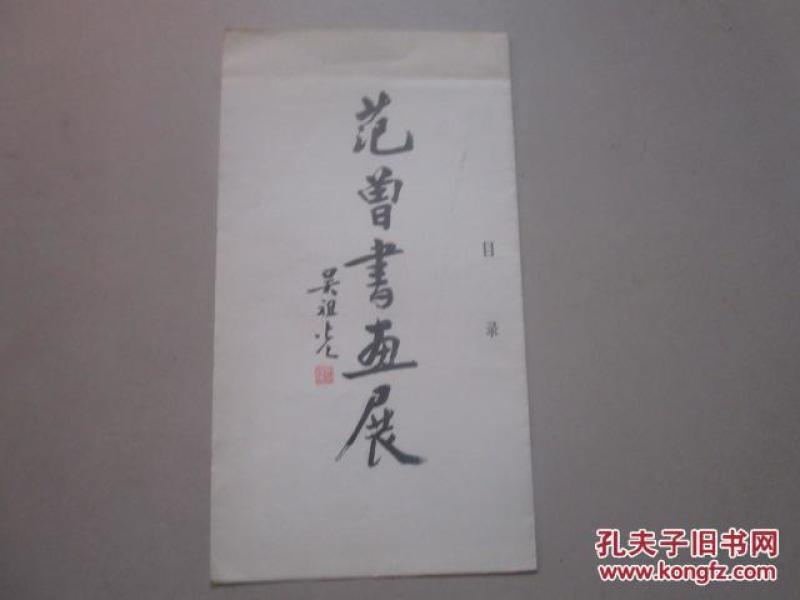 目录
范曾书画展
吴祖光
孔夫子旧书网
www.kongfz.com